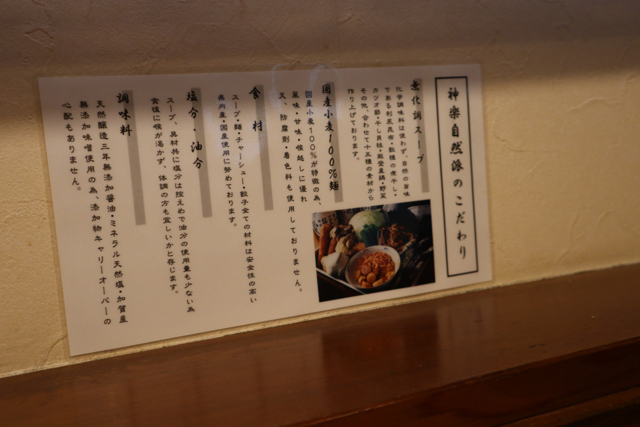 神楽自然派のこだわり
無化調スープ
化学調味料は使わず、自然の旨味
である利尻昆布・数種の煮干し・
カツオ節・干し貝柱・能登豊鶏・野菜
その他、合わせて十五種の素材から
作り上げております。
国産小麦100%麺
国産小麦100%が特徴の為、
風味・甘味・喉越しに優れ
又、防腐剤・着色料も使用しておりません。
食材
スープ・麺・チャーシュー・餃子全ての材料は安全性の高い
県内産・国産使用に努めております。
塩分・油分
スープ、具材共に塩分は控えめで油分の使用量も少ない為
食後に喉が渇かず、体調の方も宜しいかと存じます。
調味料
天然醸造三年無添加醤油・ミネラル天然塩・加賀産
無添加味噌使用の為、添加物キャリーオーバーの
心配もありません。